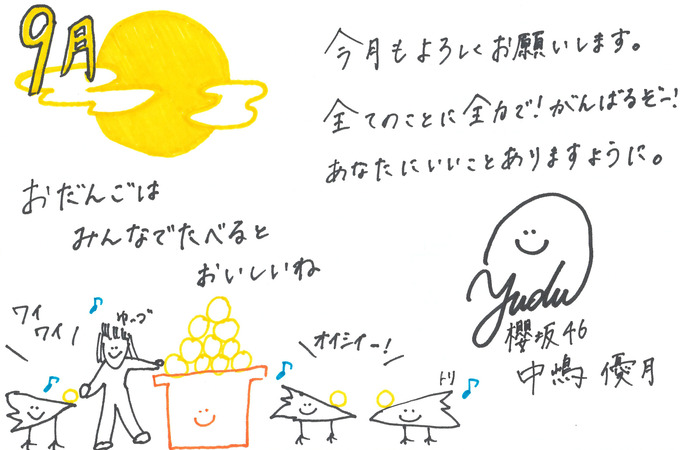 9月
今月もよろしくお願いします。
全てのことに全力で！がんばるぞー！
あなたにいいことありますように。
おだんごは
みんなでたべると
おいしいね
Yudu
櫻坂46
中嶋 優月
ワイ
ワイ
ゆーづ
オイシイー！
トリ